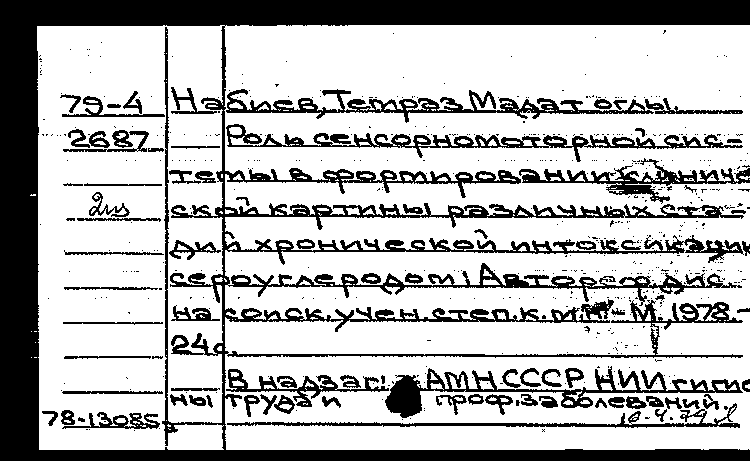 79-4 Набиев, Темраз Мадат оглы.
2687 Роль сенсорномоторной сис-
темы в формировании клиниче
2из ской картины различных ста-
дий хронической интоксикации
сероуглеродом: Автореф. дис.
на соиск. учен. степ. к. м.н.- М., 1978.-
24с.
В надзаг: АМН СССР, НИИ гигие
ны труда и проф. заболеваний.
78-13085 10.4.79